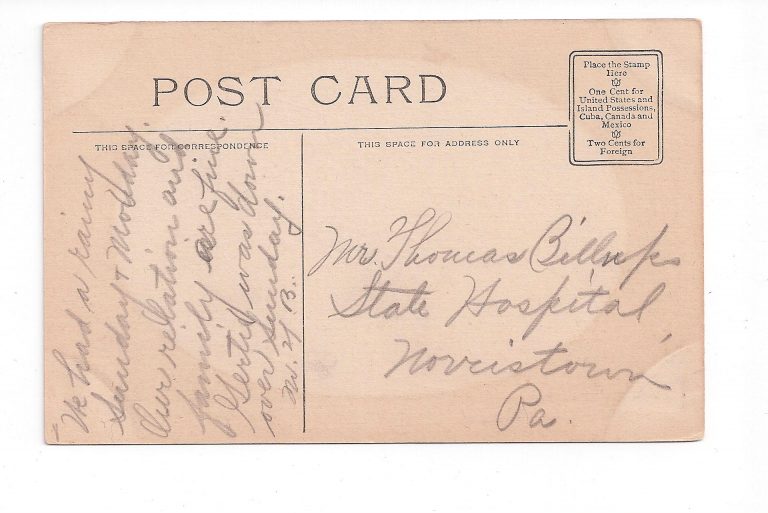 POST CARD
Place the Stamp
Here
One Cent for
United States and
Island Possessions,
Cuba, Canada and
Mexico
Two Cents for
Foreign
THIS SPACE FOR CORRESPONDENCE
THIS SPACE FOR ADDRESS ONLY
We had a rainy
Sunday & Monday.
Our relation and
family are fine.
Gertie was down
over Sunday.
M. y B.
Mr. Thomas Billups
State Hospital
Norristown
Pa.